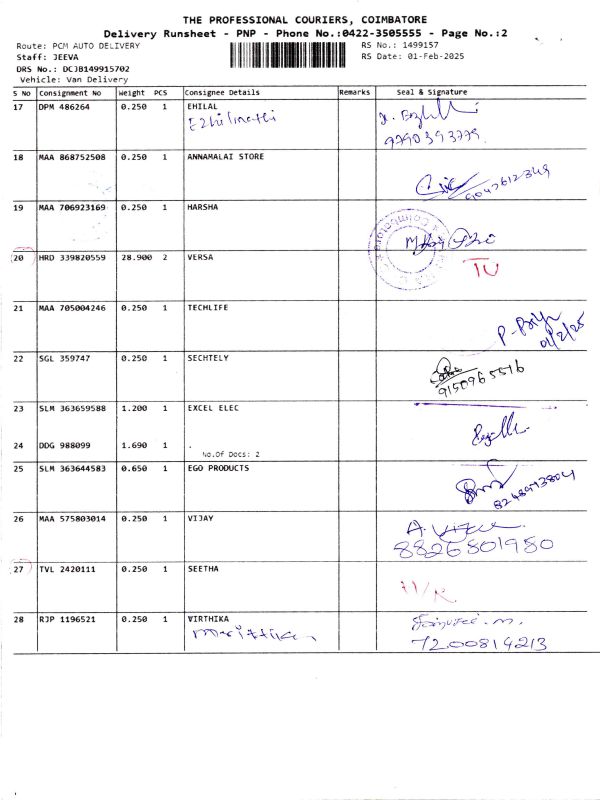 THE PROFESSIONAL COURIERS, COIMBATORE
Delivery Runsheet - PNP - Phone No.:0422-3505555 - Page No.:2
Route: PCM AUTO DELIVERY RS No.: 1499157
Staff: JEEVA RS Date: 01-Feb-2025
DRS No.: DCJB149915702
Vehicle: Van Delivery
S No Consignment No Weight PCS Consignee Details Remarks Seal & Signature
17 DPM 486264 0.250 1 EHILAL
Ezhilmathi
9790393779
18 MAA 868752508 0.250 1 ANNAMALAI STORE
9047612349
19 MAA 706923169 0.250 1 HARSHA
20 HRD 339820559 28.900 2 VERSA
TU
21 MAA 705004246 0.250 1 TECHLIFE
01/2/25
22 SGL 359747 0.250 1 SECHTELY
9150965516
23 SLM 363659588 1.200 1 EXCEL ELEC
24 DDG 988099 1.690 1 .
No.Of Docs: 2
25 SLM 363644583 0.650 1 EGO PRODUCTS
26 MAA 575803014 0.250 1 VIJAY
8826801980
27 TVL 2420111 0.250 1 SEETHA
28 RJP 1196521 0.250 1 VIRTHIKA
7200814213